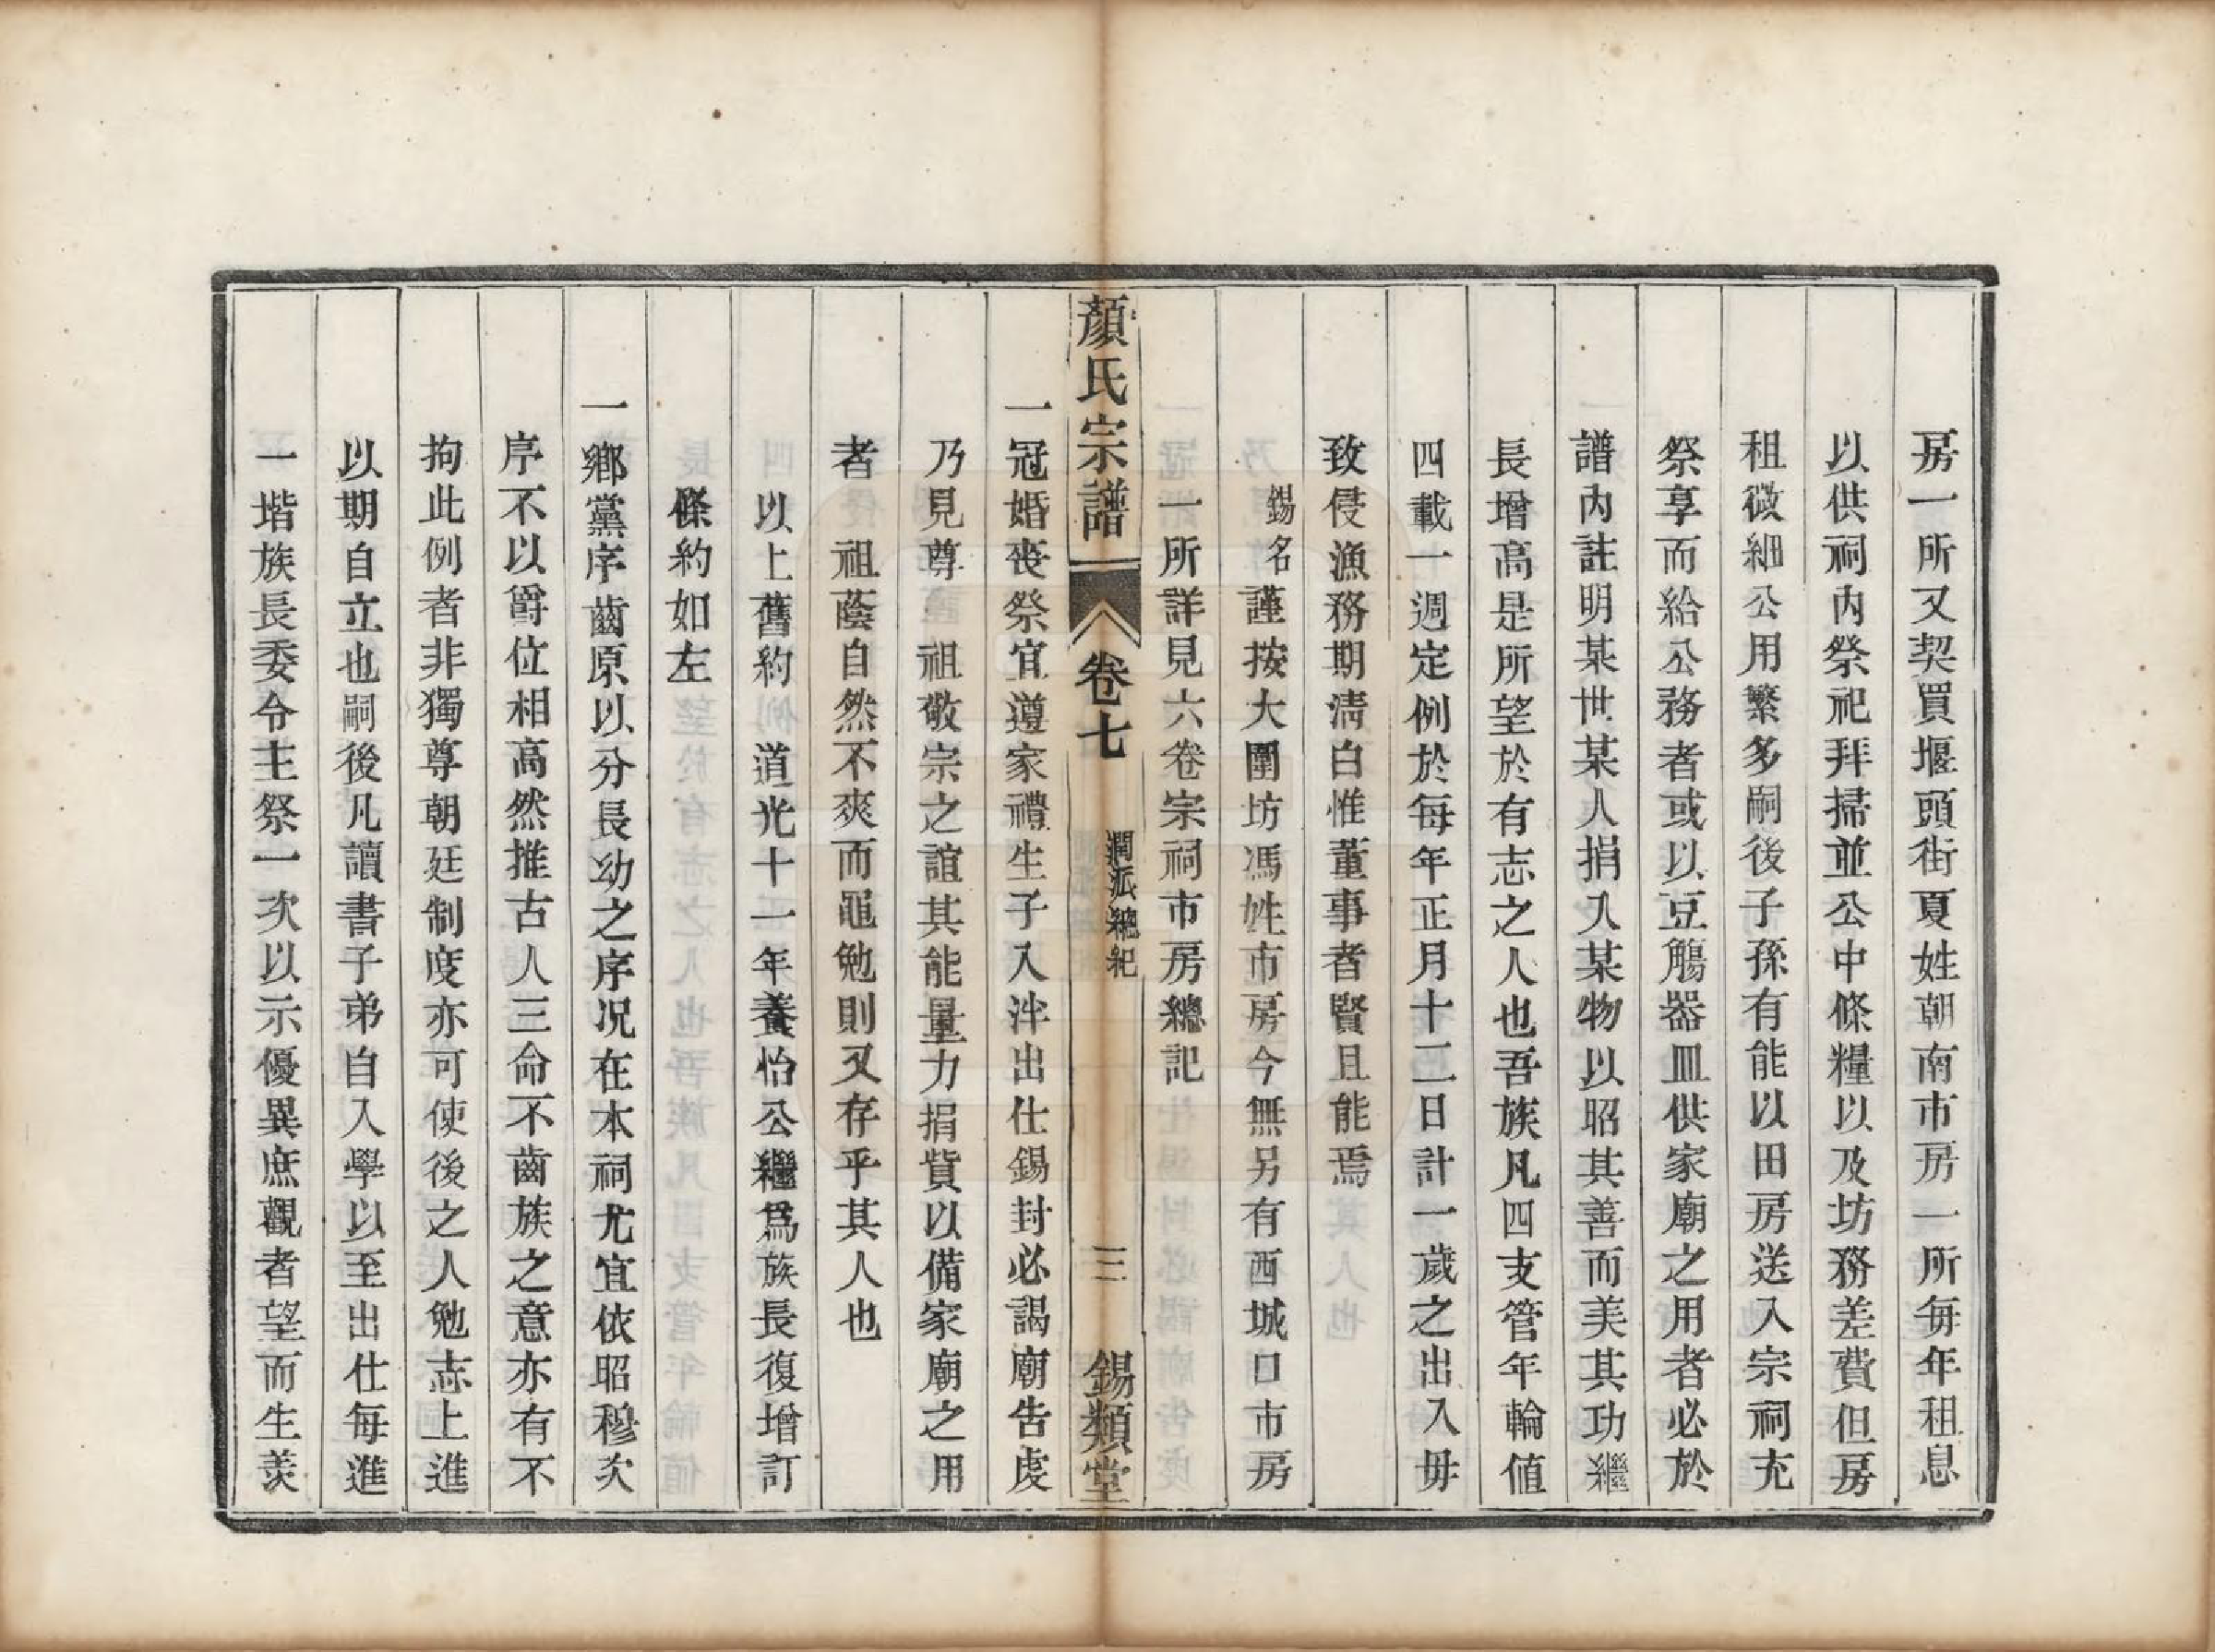 房一所又契買堰頭街夏姓朝南市房一所每年租息
以供祠內祭祀拜掃並公中條糧以及坊務差費但房
租微細公用繁多嗣後子孫有能以田房送入宗祠充
祭享而給公務者或以豆觴器皿供家廟之用者必於
譜內註明某世某人捐入某物以昭其善而美其功繼
長增高是所望於有志之人也吾族凡四支管年輪值
四載一週定例於每年正月十二日計一歲之出入毋
致侵漁務期清白惟董事者賢且能焉
錫名謹按大圍坊馮姓市房今無另有西城口市房
一所詳見六卷宗祠市房總記
顏氏宗譜 卷七 潤派總紀 三 錫類堂
一冠婚喪祭宜遵家禮生子入泮出仕錫封必謁廟告虔
乃見尊 祖敬宗之誼其能量力捐貲以備家廟之用
者 祖蔭自然不爽而黽勉則又存乎其人也
以上舊約 道光十一年養怡公繼爲族長復增訂
條約如左
一鄉黨序齒原以分長幼之序况在本祠尤宜依昭穆次
序不以爵位相高然推古人三命不齒族之意亦有不
拘此例者非獨尊朝廷制度亦可使後之人勉志上進
以期自立也嗣後凡讀書子弟自入學以至出仕每進
一堦族長委令主祭一次以示優異庶觀者望而生羨